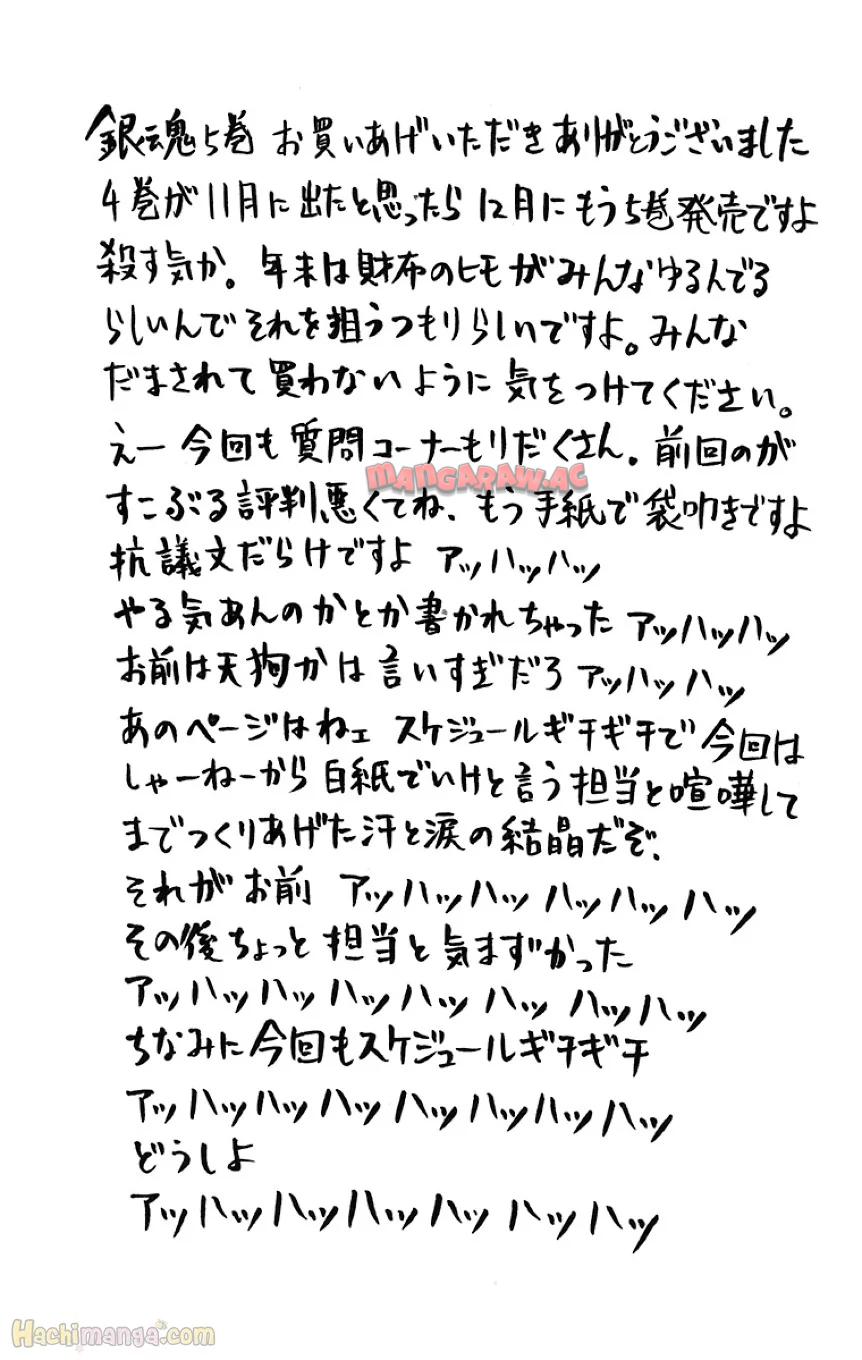 銀魂5巻 お買いあげいただきありがとうございました
4巻が11月に出たと思ったら12月にもう5巻発売ですよ
殺す気か。年末は財布のヒモがみんなゆるんでる
らしいんでそれを狙うつもりらしいですよ。みんな
だまされて買わないように気をつけてください。
えー今回も質問コーナーもりだくさん。前回のが
MANGARAW.AC
すこぶる評判悪くてね、もう手紙で袋叩きですよ
抗議文だらけですよ アッハッハッ
やる気あんのかとか書かれちゃった アッハッハッ
お前は天狗かは言いすぎだろ アッハッハッ
あのページはねェ スケジュールギチギチで今回は
しゃーねーから白紙でいけと言う担当と喧嘩して
までつくりあげた汗と涙の結晶だぞ、
それがお前 アッハッハッハッハッハッ
その後ちょっと担当と気まずかった
アッハッハッハッハッハッハッハッ
ちなみに今回もスケジュールギチギチ
アッハッハッハッハッハッハッハッ
どうしよ
アッハッハッハッハッハッハッ
Hachimanga.com